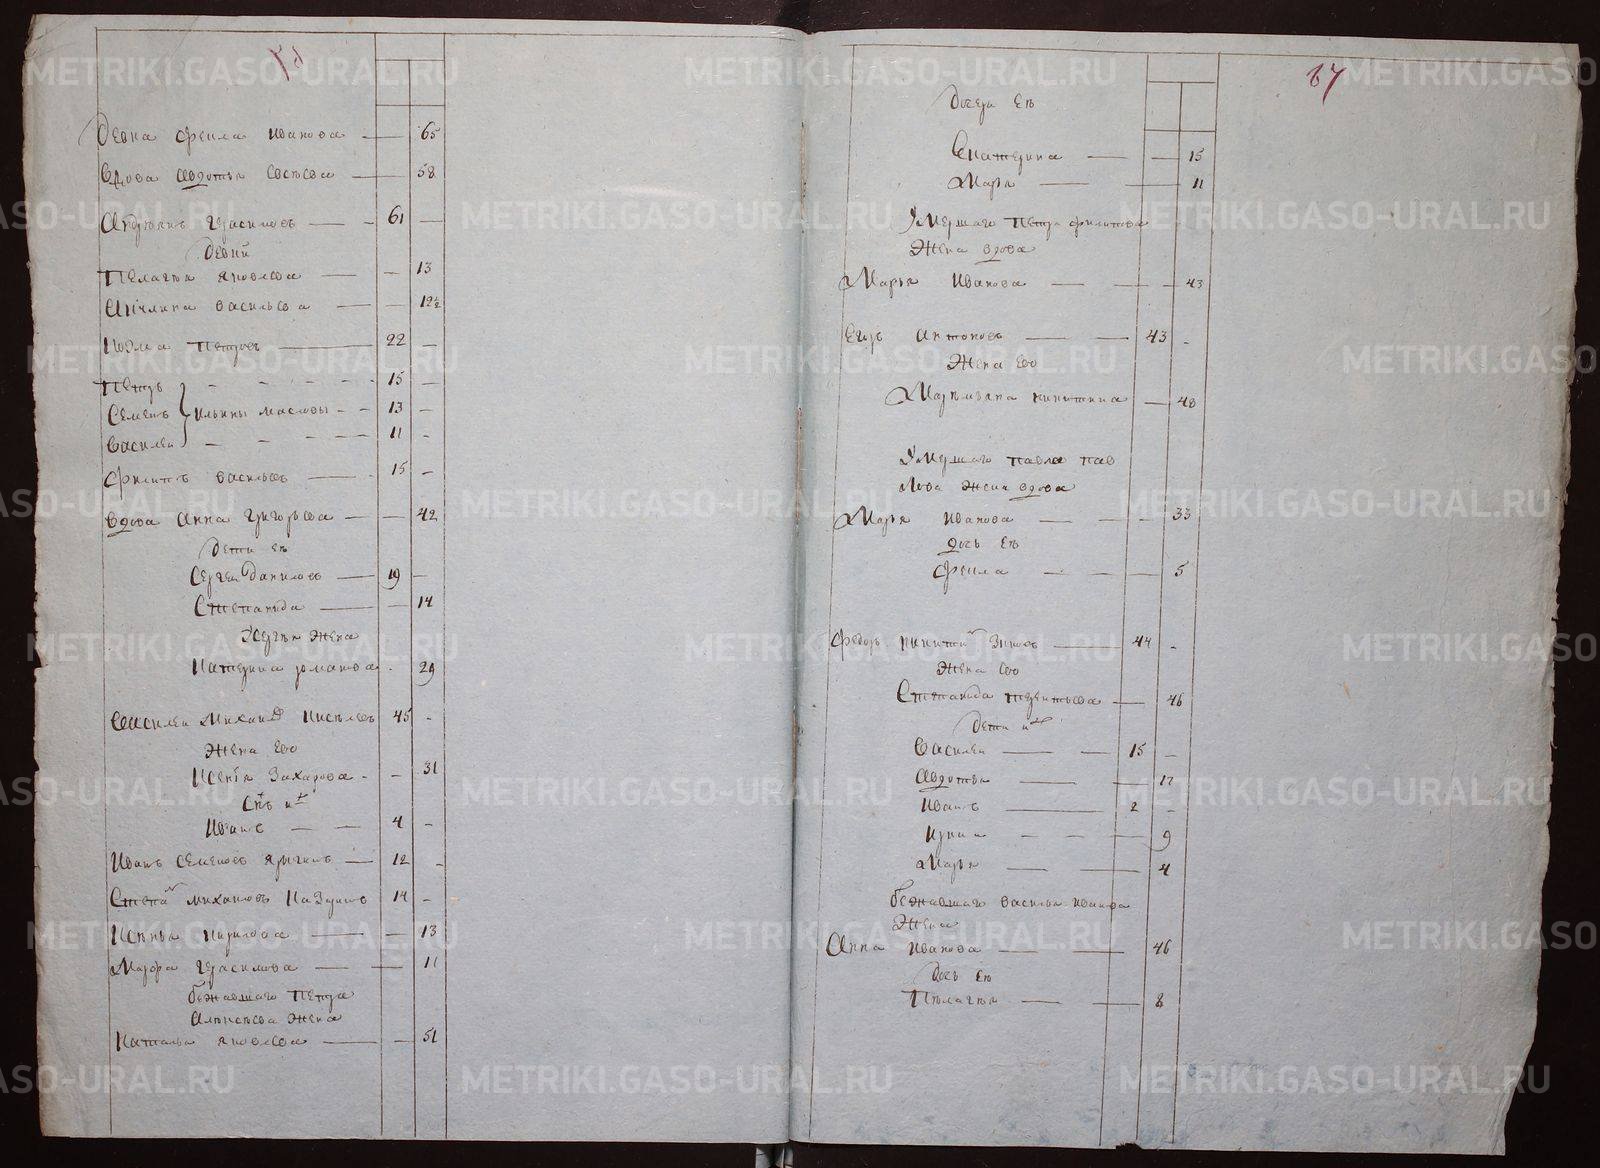 Девка Фекла Иванова — 65
Вдова Авдотья — 58
Герасимовъ — 61 —
Девки
Пелагея Яковлева — — 13
Васильева — — 12½
Козма Петровъ — 22 —
Петръ — 15 —
Семенъ Ильины Масловы — 13 —
Василей — 11 —
Филипъ Васильевъ — 15 —
Вдова Анна Григорьева — — 42
Дети ея
Сергей Даниловъ — 19 —
Степанида — — 14
Сергея жена
Катерина Романова — 29
Василей Михайлов Киселевъ 45 —
Жена ево
Ксенія Захарова — — 31
Снъ их
Иванъ — — 4 —
Иванъ Семеновъ — 12 —
Степан Михаиловъ 14 —
Кирилова — — 13
Герасимова — — 11
бежавшаго Петра
Алексеева жена
Наталья Яковлева — — 51
67
Дочери ея
Екатерина — — 15
Марья — — 11
Умершаго Петра Филипова
Жена вдова
Марья Иванова — — — 43
Егоръ Антоновъ — — 43 —
Жена ево
Маремьяна Никитина — 48
Умершаго Павла Пав
лова жена вдова
Марья Иванова — — — 33
Дочь ея
Фекла — — — 5
Федоръ Никитин Зыковъ — 44 —
Жена ево
Степанида Терентьева — 46
Дети их
Василей — — 15 —
Авдотья — — 17
Иванъ — 2 —
Ирина — — — 9
Марья — — 4
бежавшаго Василья Иванова
Жена
Анна Иванова — — 46
Дочь ея
Пелагея — — 8
METRIKI.GASO-URAL.RU